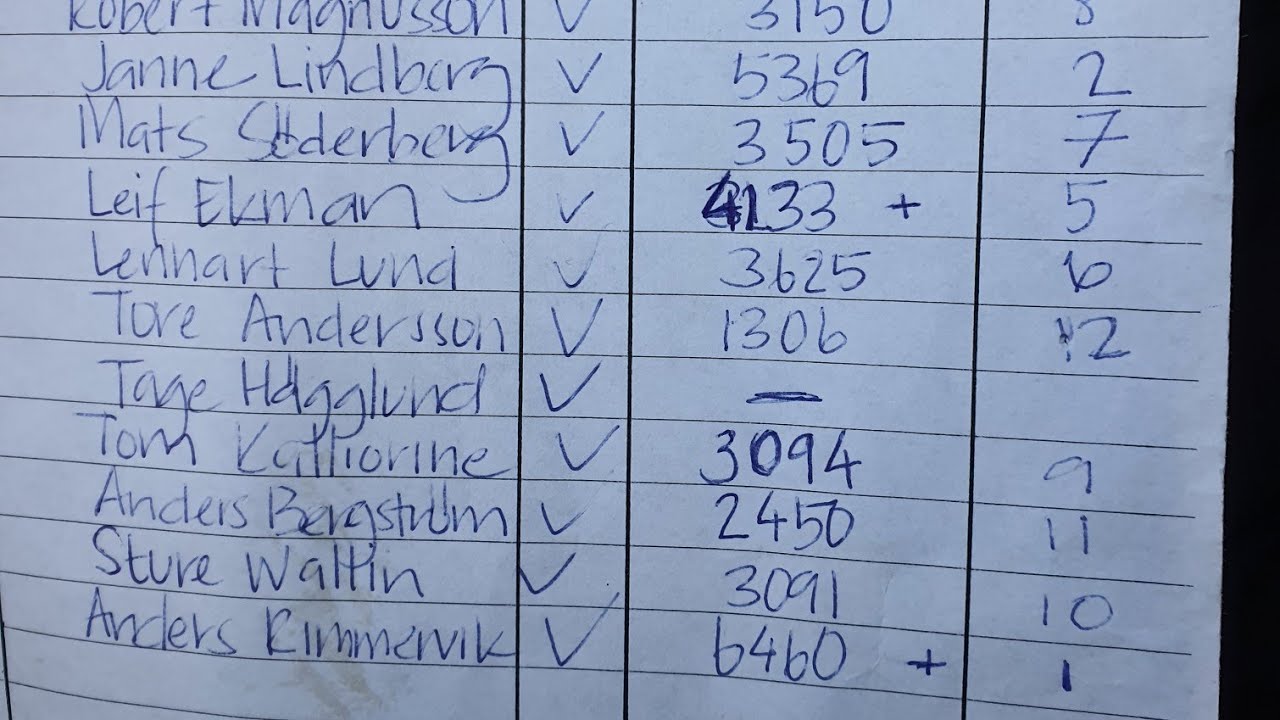 Robert Magnusson V 3150 8
Janne Lindberg V 5369 2
Mats Söderberg V 3505 7
Leif Ekman V 4133 + 5
Lennart Lund V 3625 6
Tore Andersson V 1306 12
Tage Hägglund V —
Tom V 3094 9
Anders Bergström V 2450 11
Sture Wallin V 3091 10
Anders Rimmervik V 6460 + 1